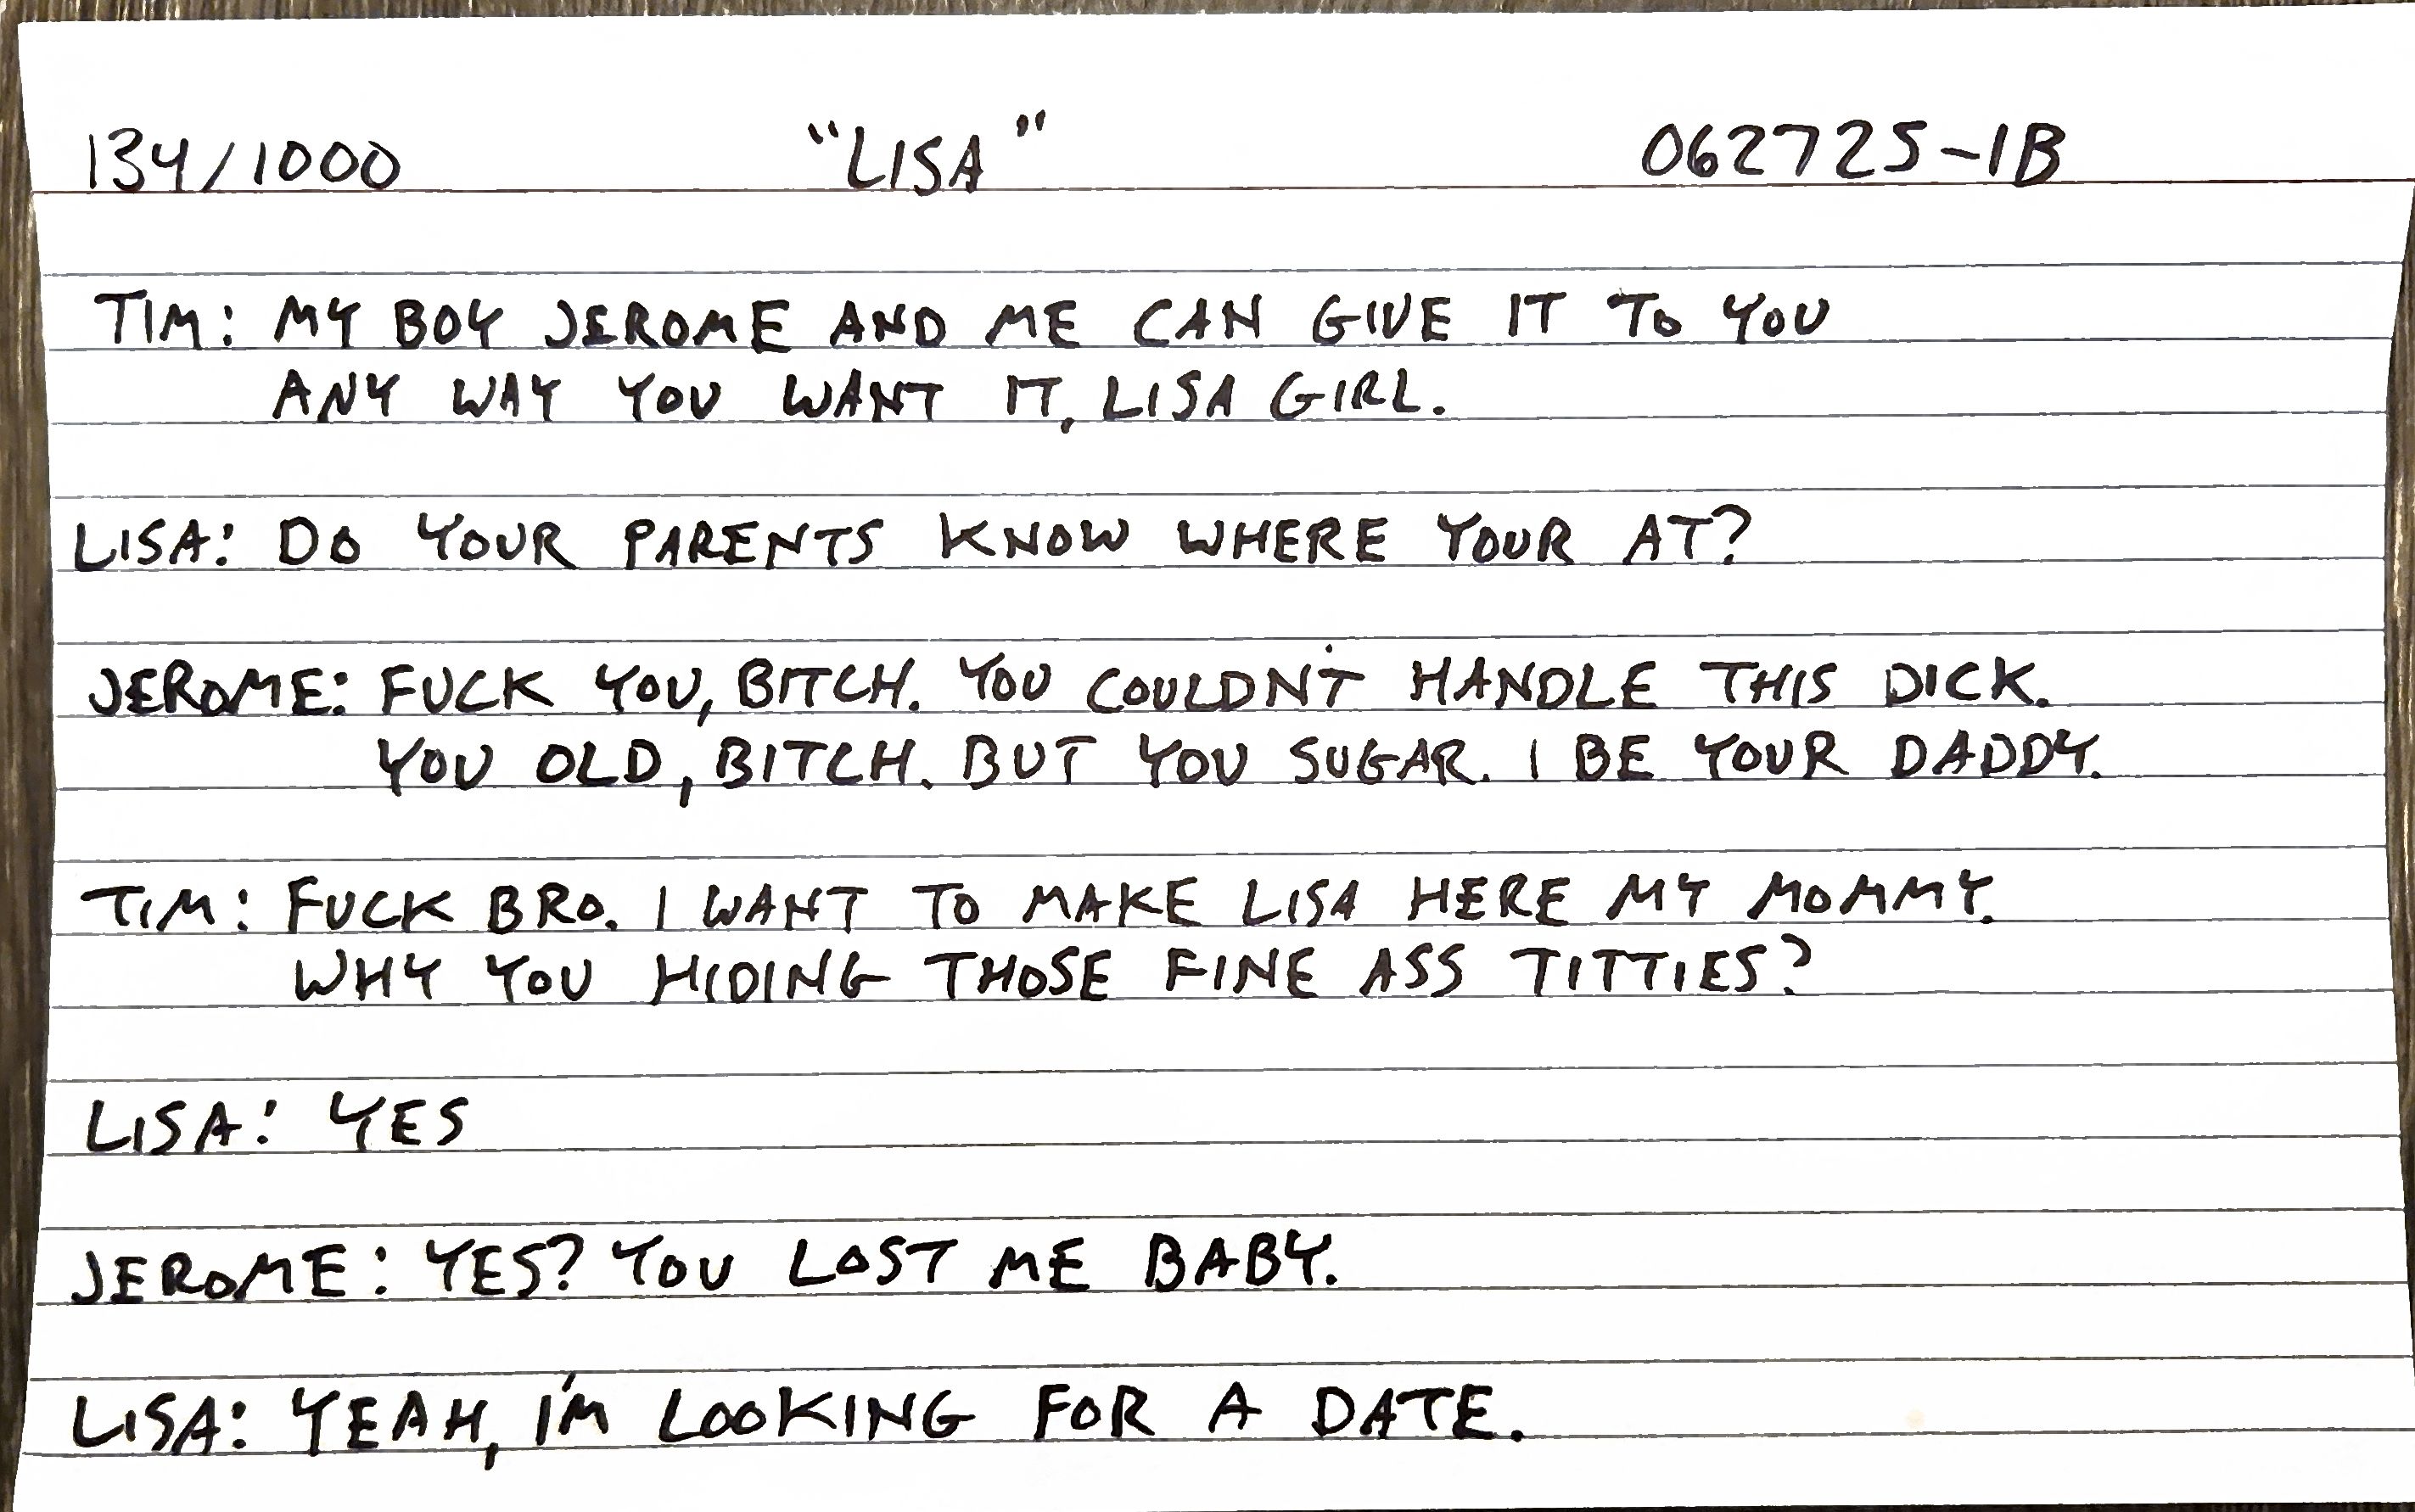 134/1000 "LISA" 062725-1B
TIM: MY BOY JEROME AND ME CAN GIVE IT TO YOU
ANY WAY YOU WANT IT, LISA GIRL.
LISA: DO YOUR PARENTS KNOW WHERE YOUR AT?
JEROME: FUCK YOU, BITCH. YOU COULDN'T HANDLE THIS DICK.
YOU OLD, BITCH. BUT YOU SUGAR. I BE YOUR DADDY.
TIM: FUCK BRO. I WANT TO MAKE LISA HERE MY MOMMY.
WHY YOU HIDING THOSE FINE ASS TITTIES?
LISA: YES
JEROME: YES? YOU LOST ME BABY.
LISA: YEAH, I'M LOOKING FOR A DATE.